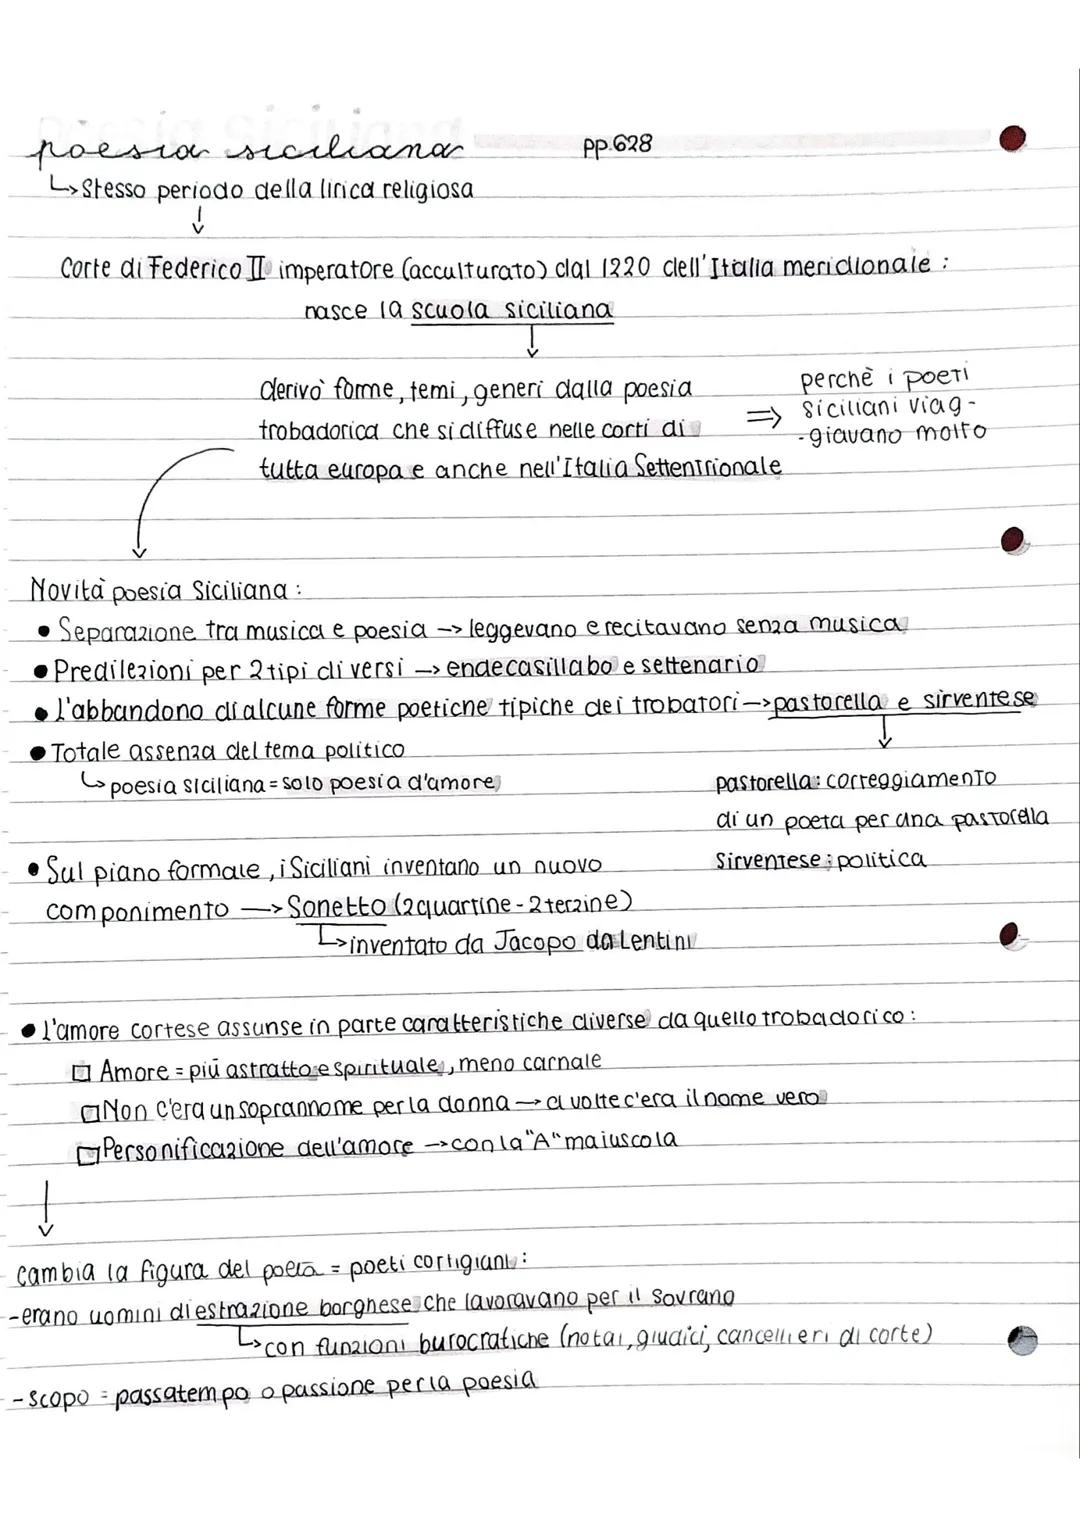 poesia siciliana pp.628
↳ Stesso periodo della lirica religiosa
↓
Corte di Federico II imperatore (acculturato) dal 1220 dell'Italia meridionale :
nasce la scuola siciliana
↓
derivò forme, temi, generi dalla poesia
trobadorica che si diffuse nelle corti di
tutta europa e anche nell'Italia Settentrionale
⇒ perchè i poeti
siciliani viag-
-giavano molto
Novità poesia Siciliana :
• Separazione tra musica e poesia → leggevano e recitavano senza musica
• Predilezioni per 2 tipi di versi → endecasillabo e settenario
• l'abbandono di alcune forme poetiche tipiche dei trobatori → pastorella e sirventese
↓
• Totale assenza del tema politico
↳ poesia siciliana = solo poesia d'amore
pastorella : correggiamento
di un poeta per una pastorella
Sirventese : politica
• Sul piano formale, i Siciliani inventano un nuovo
componimento → Sonetto (2 quartine - 2 terzine)
↳ inventato da Jacopo da Lentini
• l'amore cortese assunse in parte caratteristiche diverse da quello trobadorico :
□ Amore = più astratto e spirituale, meno carnale
□ Non c'era un soprannome per la donna → a volte c'era il nome vero
□ Personificazione dell'amore → con la "A" maiuscola
↓
Cambia la figura del poeta = poeti cortigiani :
-erano uomini di estrazione borghese che lavoravano per il Sovrano
↳ con funzioni burocratiche (notai, giudici, cancellieri di corte)
- scopo = passatempo o passione per la poesia